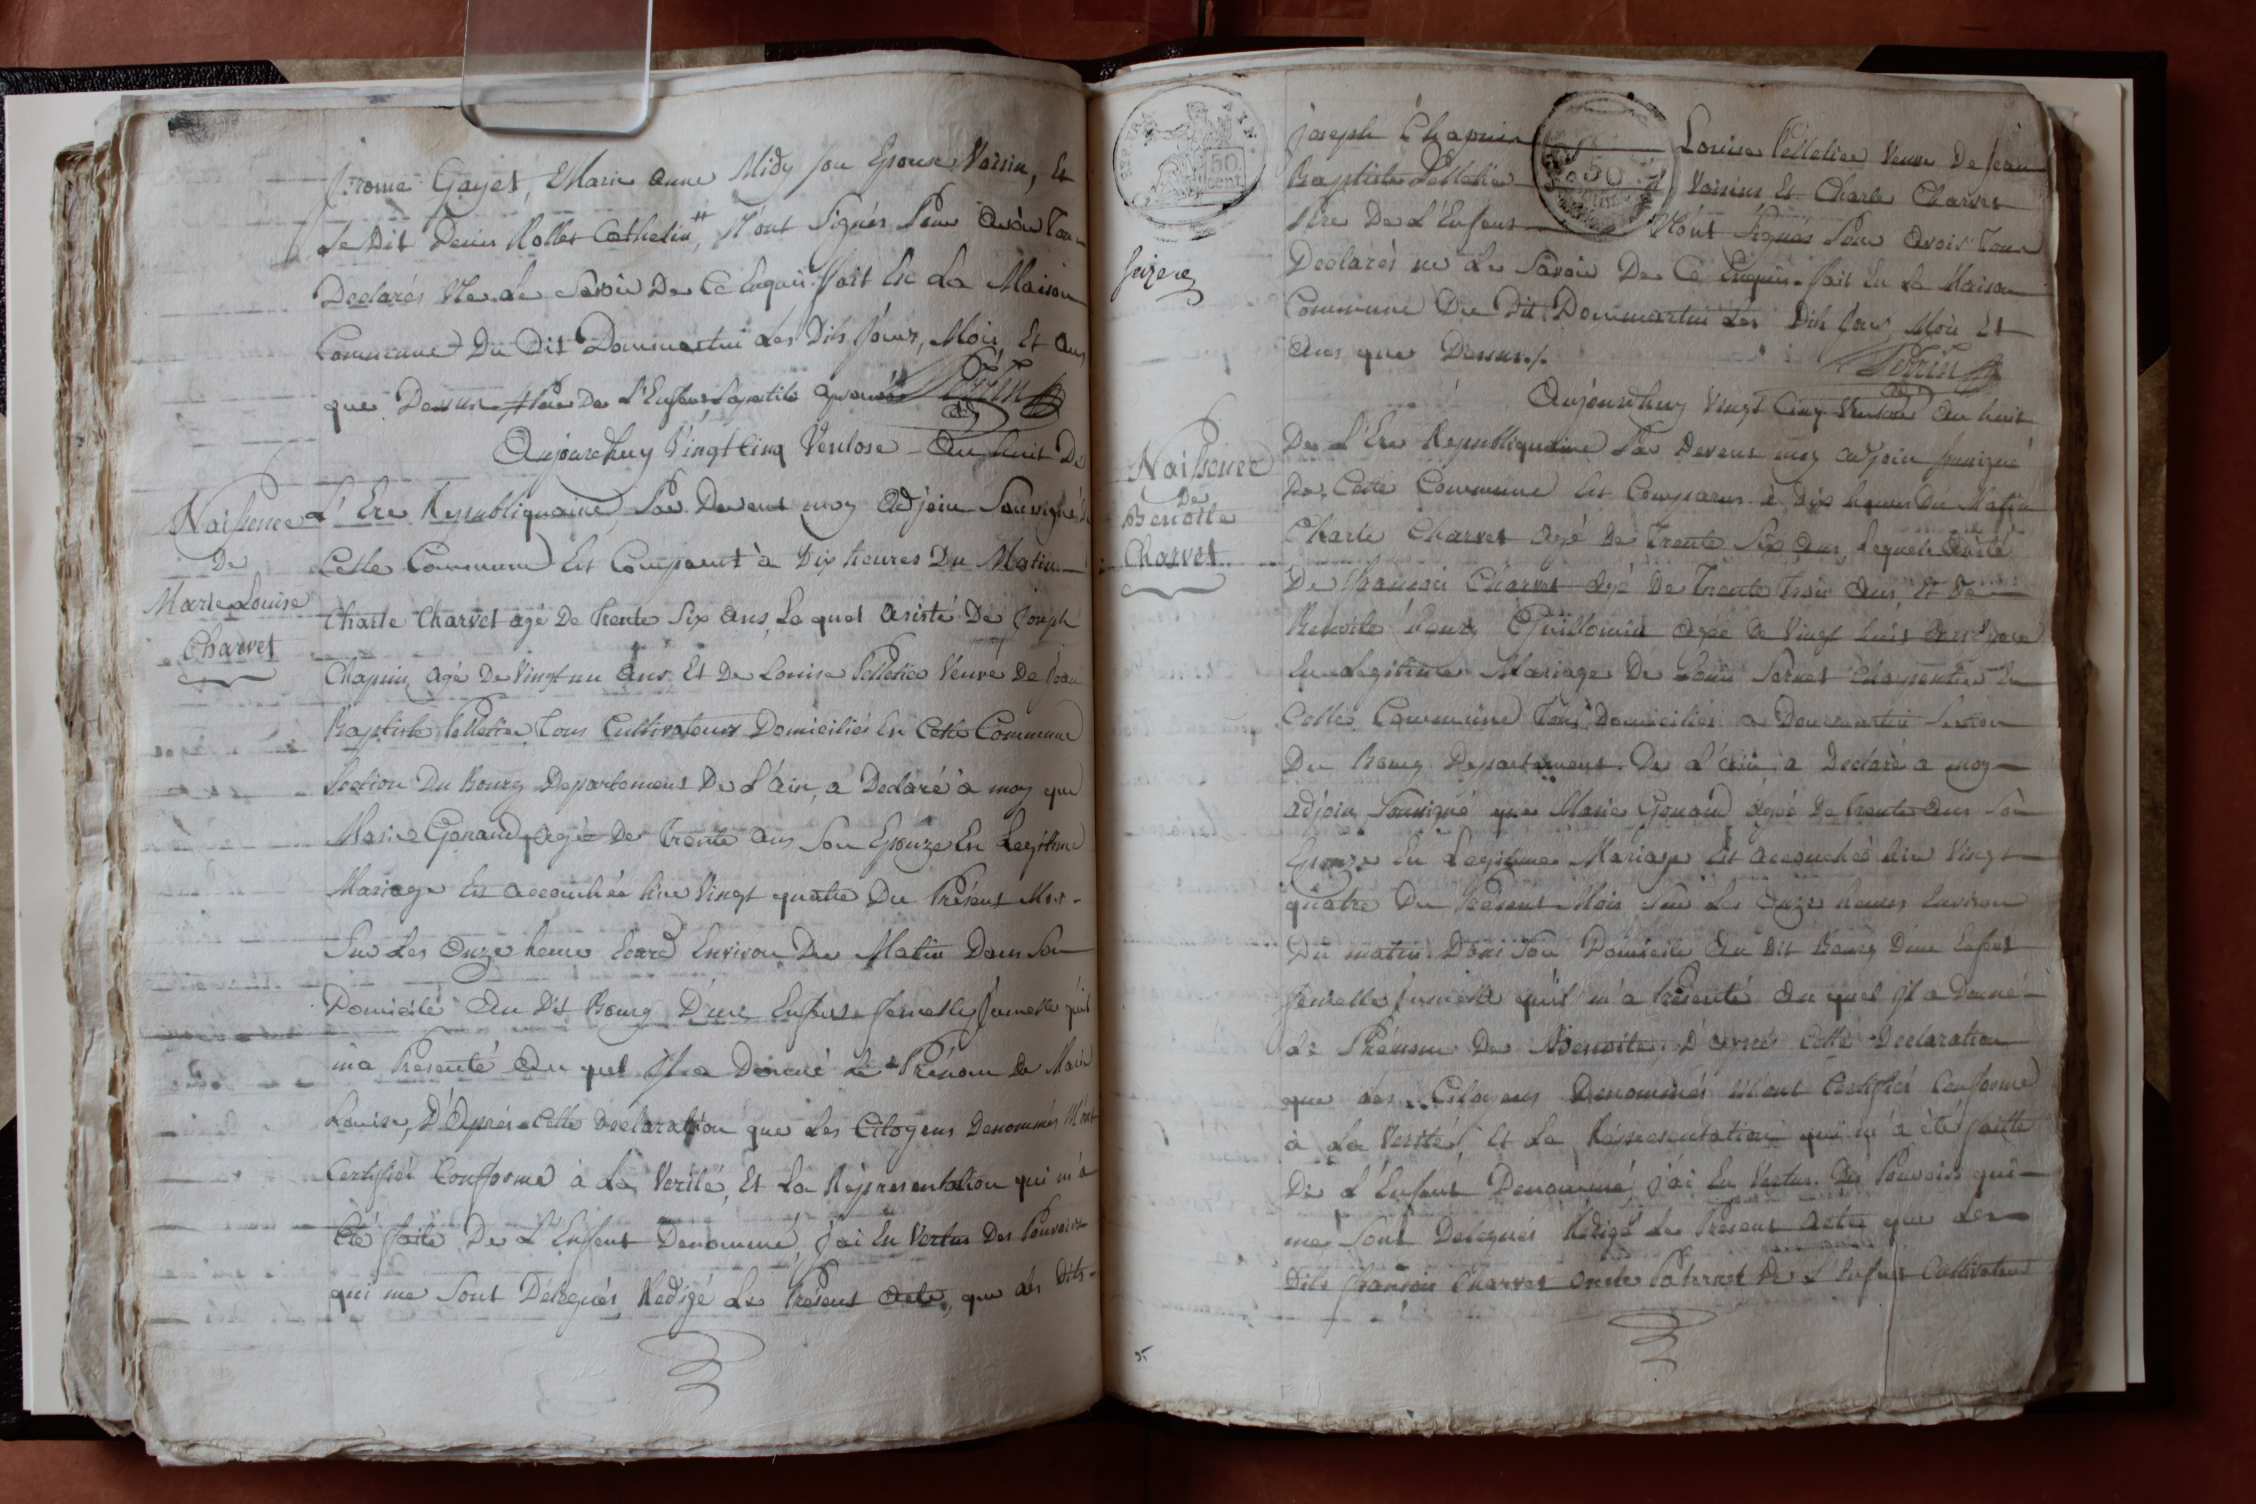 jrome Gayet, Marie Anne Midy son Epouse Voisin, Et
Le Dit Denis Rollet Cathelin #, N'ont Signés Pour Avoir Tous
Declarés Ne Le Savoir De Ce Enquis. Fait En La Maison
Commune Du Dit Dommartin Les Dits Jour, Mois, Et Ans
que Dessus # Père De L'Enfant
Perrin
Aujourdhuy Vingt Cinq Ventose An huit De
Naissence
De
Marie Louise
Charvet
L'Ere Republiquaine, Par Devent moy Adjoin Souvigné De
Cette Commune Est Comparut à Dix heures Du Matin
Charle Charvet agé De trente Six Ans, Lequel Asisté De Joseph
Chapuis Agé De Vingt un Ans Et De Louise Pelletier Veuve De Jean
Baptiste Pelletier Tous Cultivateurs Domiciliés En Cette Commune
Section Du Bourg Departement De L'ain, a Declaré à moy que
Marie Gonaud agée De trente ans Son Epouze En Legitime
Mariage Est accouchée hire Vingt quatre Du Présent Mois
Sur Les Onze heure Environ Du Matin Dans Son
Domicile Au Dit Bourg D'une Enfent femelle Jumelle qu'il
m'a Présenté Au quel Jl a Donné Le Prénom De Marie
Louise, D'Après Cette Declaration que Les Citoyens Denommés M'ont
Certifiés Conforme à La Verité, Et La Représentation qui m'a
Été faite De L'Enfent Denommé, j'ai En Vertus Des Pouvoirs
qui me Sont Délegués Redigé Le Présent Acte, que Les Dits
50
cent
Seize
joseph Chapuis Louise Pelletier Veuve De Jean
Baptiste Pelletier Voisins Et Charle Charvet
Père De L'Enfent N'ont Signés Pour Avoir Tous
Declarés ne Le Savoir De Ce Enquis. fait En La Maison
Commune Du Dit Dommartin Les Dits Jour, Mois Et
Ans que Dessus./.
Perrin
Aujourdhuy Vingt Cinq Ventose An huit
Naissence
De
Benoite
Charvet
De L'Ere Republiquaine Par Devent moy Adjoin
De Cette Commune Est Comparus à Dix heures Du Matin
Charle Charvet agé De Trente Six Ans, Lequel Asisté
De Fransois Charvet agé De Trente Trois Ans Et De
Benoite Guillomin agée De Vingt huit Ans
En Legitime Mariage De Louis Charpentier En
Cette Commune Tous Domiciliés a Dommartin Section
Du Bourg Departement De L'ain, a Declaré a moy
adjoin Souvigné que Marie Gonaud agée De trente Ans Son
Epouze En Legitime Mariage Est accouchée hire Vingt
quatre Du Présent Mois Sur Les Onze heures Environ
Du matin Dans Son Domicile Au Dit Bourg D'une Enfent
femelle jumelle qu'il m'a Présenté Au quel Jl a Donné
Le Prénom De Benoite. D'Après Cette Declaration
que Les Citoyens Denommés M'ont Certifiés Conforme
à La Verité, Et La Représentation qui m'a été faitte
De L'Enfent Denommé j'ai En Vertus Des Pouvoirs qui
me Sont Delegués Redigé Le Présent Acte que Les
Dits fransois Charvet Oncle Paternel De L'Enfent Cultivateur